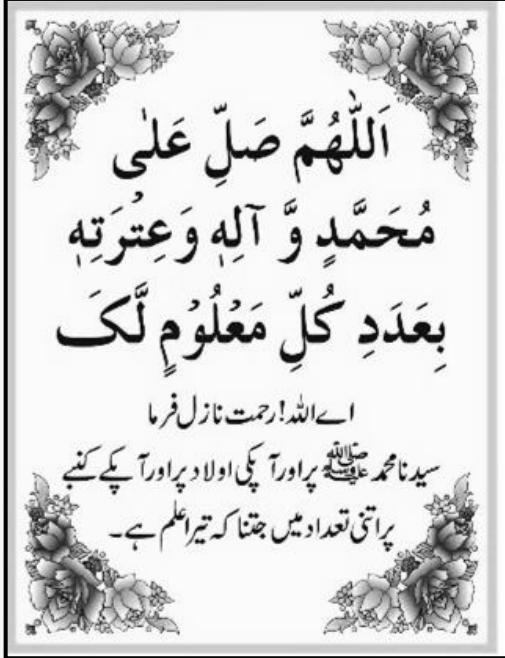 اَللّٰهُمَّ صَلِّ عَلٰى
مُحَمَّدٍ وَّ آلِهٖ وَعِتْرَتِهٖ
بِعَدَدِ كُلِّ مَعْلُوْمٍ لَّکَ
اے اللہ! رحمت نازل فرما
سیدنا محمد ﷺ پر اور آپکی اولاد پر اور آپکے کنبے
پر اتنی تعداد میں جتنا کہ تیرا علم ہے۔